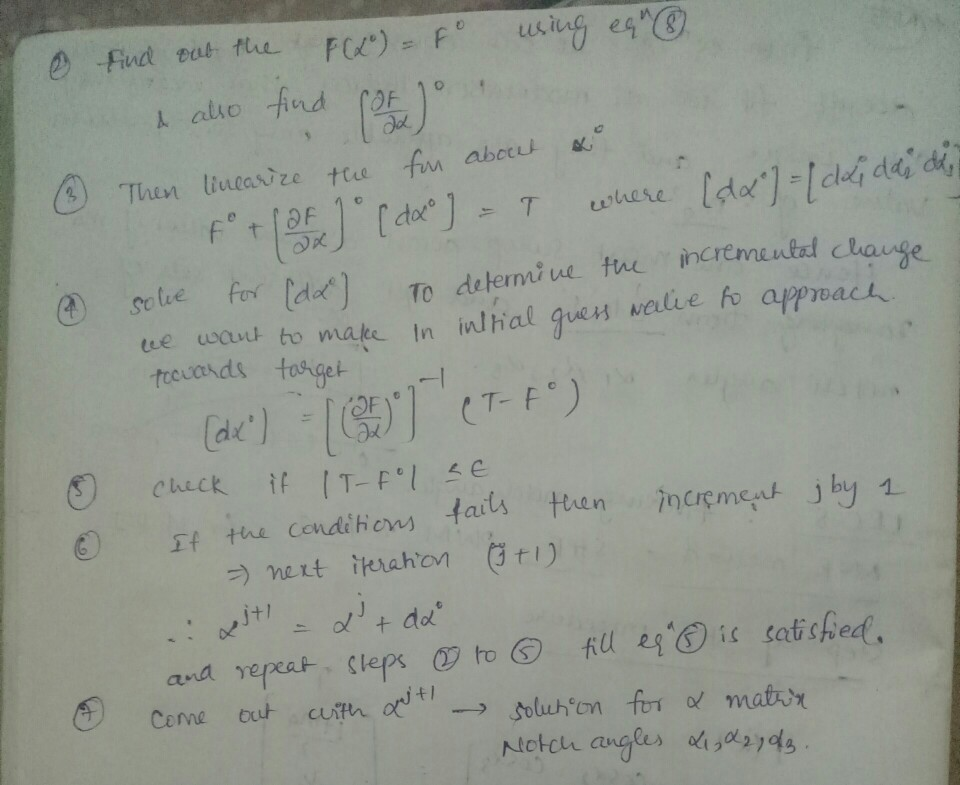 ② Find out the F(α°) = F° using eqⁿ ⑧
& also find [∂F/∂α]°
③ Then linearize the fun about α°
F° + [∂F/∂α]° [dα°] = T where [dα°] = [dα₁° dα₂° dα₃°]
④ solve for [dα°] To determine the incremental change
we want to make in initial guess value to approach
towards target
[dα°] = [(∂F/∂α)°]⁻¹ (T-F°)
⑤ check if |T-F°| ≤ ϵ
⑥ If the conditions fails then increment j by 1
⇒ next iteration (j+1)
∴ α^{j+1} = α^{j} + dα°
and repeat steps ② to ⑤ till eqⁿ ⑤ is satisfied.
⑦ Come out with α^{j+1} → solution for α matrix
Notch angles α₁, α₂, α₃.